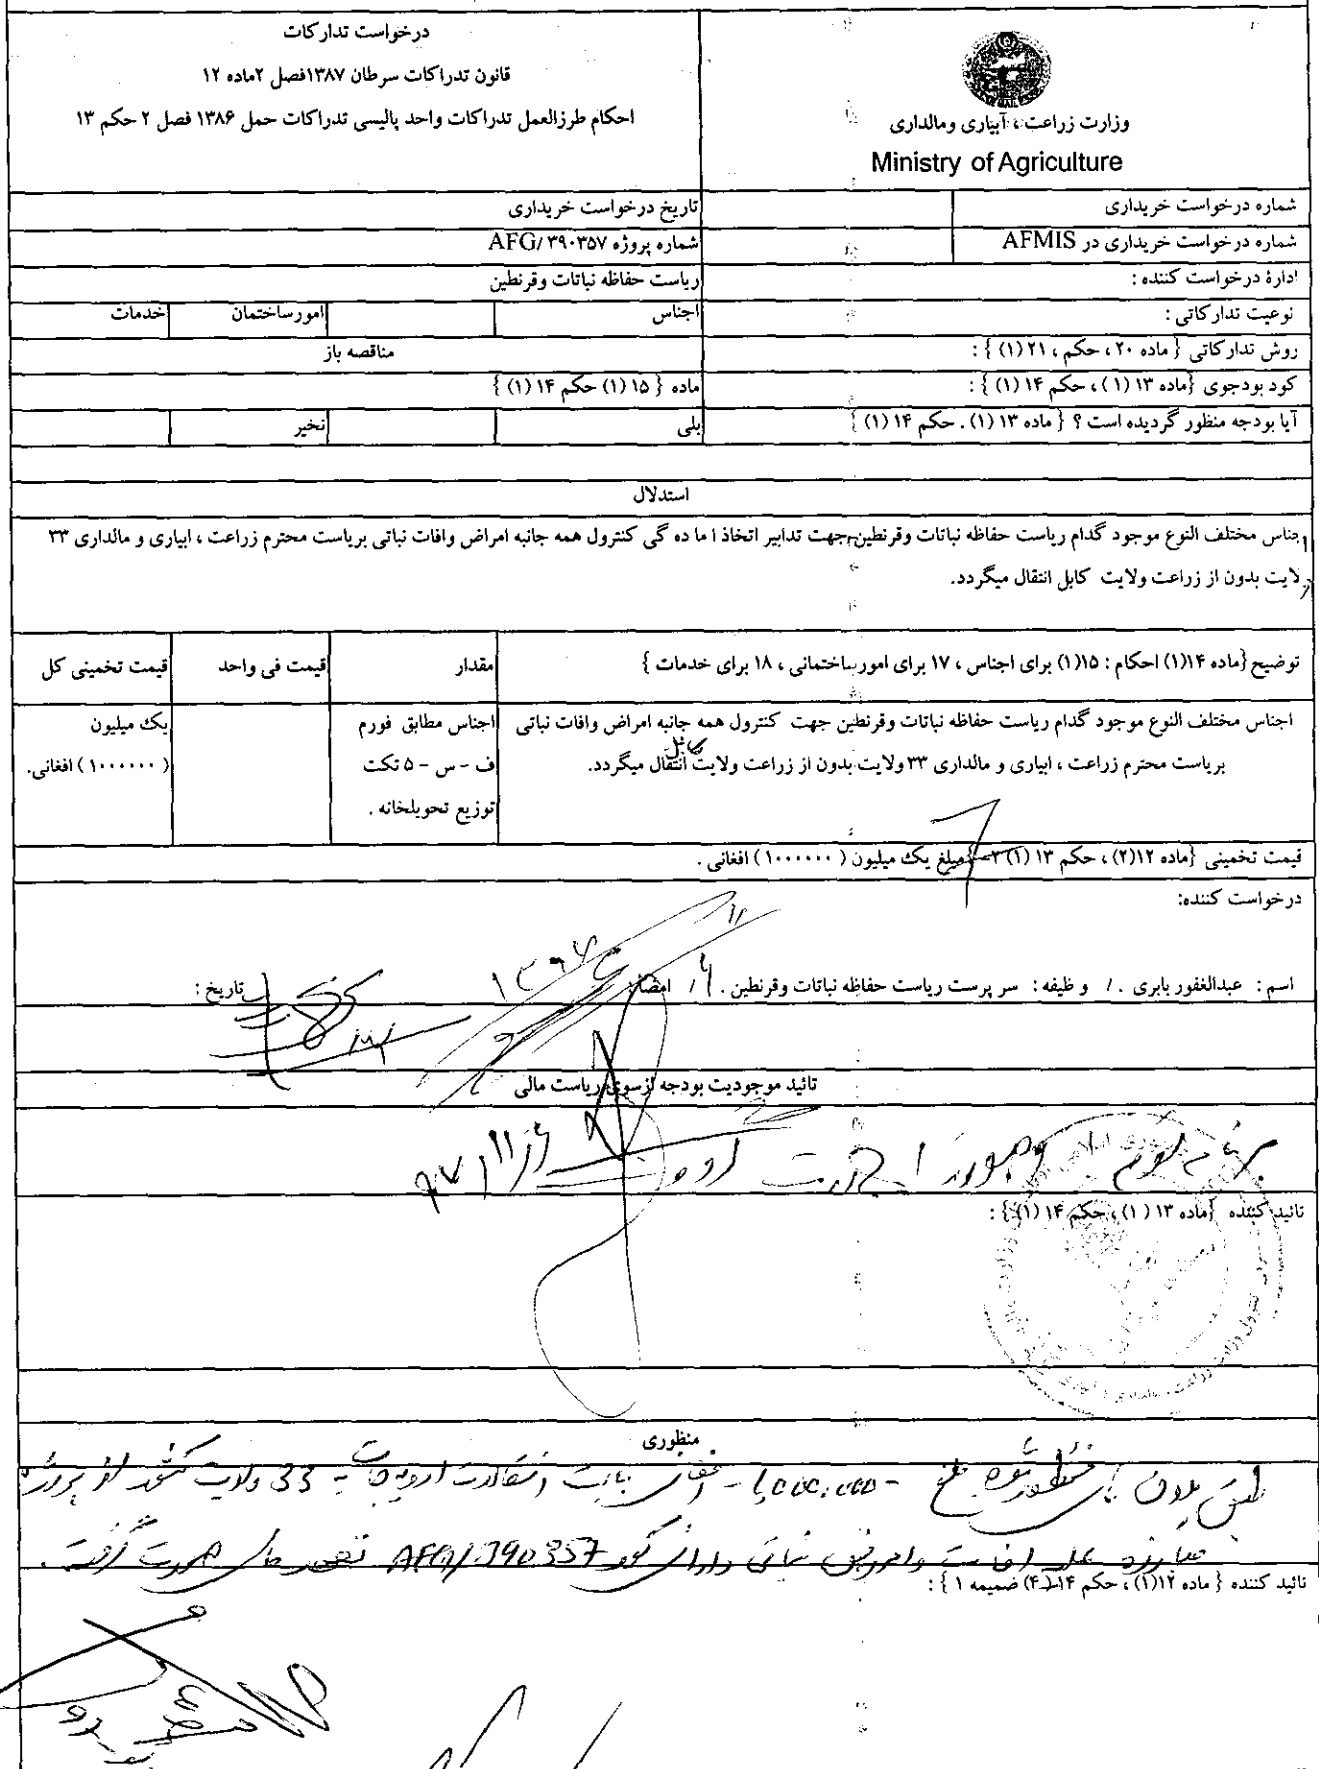 وزارت زراعت، آبیاری ومالداری
Ministry of Agriculture
درخواست تدارکات
قانون تدراکات سرطان ۱۳۸۷فصل ۲ماده ۱۲
احکام طرزالعمل تدراکات واحد پالیسی تدراکات حمل ۱۳۸۶ فصل ۲ حکم ۱۳
شماره درخواست خریداری
تاریخ درخواست خریداری
شماره درخواست خریداری در AFMIS
شماره پروژه AFG/ ۳۹۰۳۵۷
ادارۀ درخواست کننده :
ریاست حفاظه نباتات وقرنطین
نوعیت تدارکاتی :
اجناس
امورساختمان
خدمات
روش تدارکاتی { ماده ۲۰ ، حکم ، ۲۱ (۱) } :
مناقصه باز
کود بودجوی {ماده ۱۳ (۱) ، حکم ۱۴ (۱) } :
ماده { ۱۵ (۱) حکم ۱۴ (۱) }
آیا بودجه منظور گردیده است ؟ { ماده ۱۳ (۱) . حکم ۱۴ (۱) }
بلی
نخیر
استدلال
اجناس مختلف النوع موجود گدام ریاست حفاظه نباتات وقرنطین جهت تدابیر اتخاذ ا ما ده گی کنترول همه جانبه امراض وافات نباتی بریاست محترم زراعت ، ابیاری و مالداری ۳۳
ولایت بدون از زراعت ولایت کابل انتقال میگردد.
توضیح {ماده ۱۴(۱) احکام : ۱۵(۱) برای اجناس ، ۱۷ برای امورساختمانی ، ۱۸ برای خدمات }
مقدار
قیمت فی واحد
قیمت تخمینی کل
اجناس مختلف النوع موجود گدام ریاست حفاظه نباتات وقرنطین جهت کنترول همه جانبه امراض وافات نباتی
بریاست محترم زراعت ، ابیاری و مالداری ۳۳ ولایت بدون از زراعت ولایت کابل انتقال میگردد.
اجناس مطابق فورم
ف - س - ۵ تکت
توزیع تحویلخانه .
یک میلیون
( ۱۰۰۰۰۰۰ ) افغانی.
قیمت تخمینی {ماده ۱۲(۲) ، حکم ۱۳ (۱) ۲-} مبلغ یک میلیون ( ۱۰۰۰۰۰۰ ) افغانی .
درخواست کننده:
اسم : عبدالغفور بابری ./ وظیفه : سر پرست ریاست حفاظه نباتات وقرنطین . امضا تاریخ :
تائید موجودیت بودجه ازسوی ریاست مالی
تائید کننده {ماده ۱۳ (۱) ، حکم ۱۴ (۱) } :
منظوری
طبق پلان منظور شده مبلغ -1,000,000/- افغانی بابت انتقالات ادویه جات به 33 ولایت کشور از پروژه
مبارزه علیه افات و امراض نباتی دارای کود AFG/390357 صورت گرفت .
تائید کننده { ماده ۱۲(۱) ، حکم ۱۴(۴) ضمیمه ۱ } :